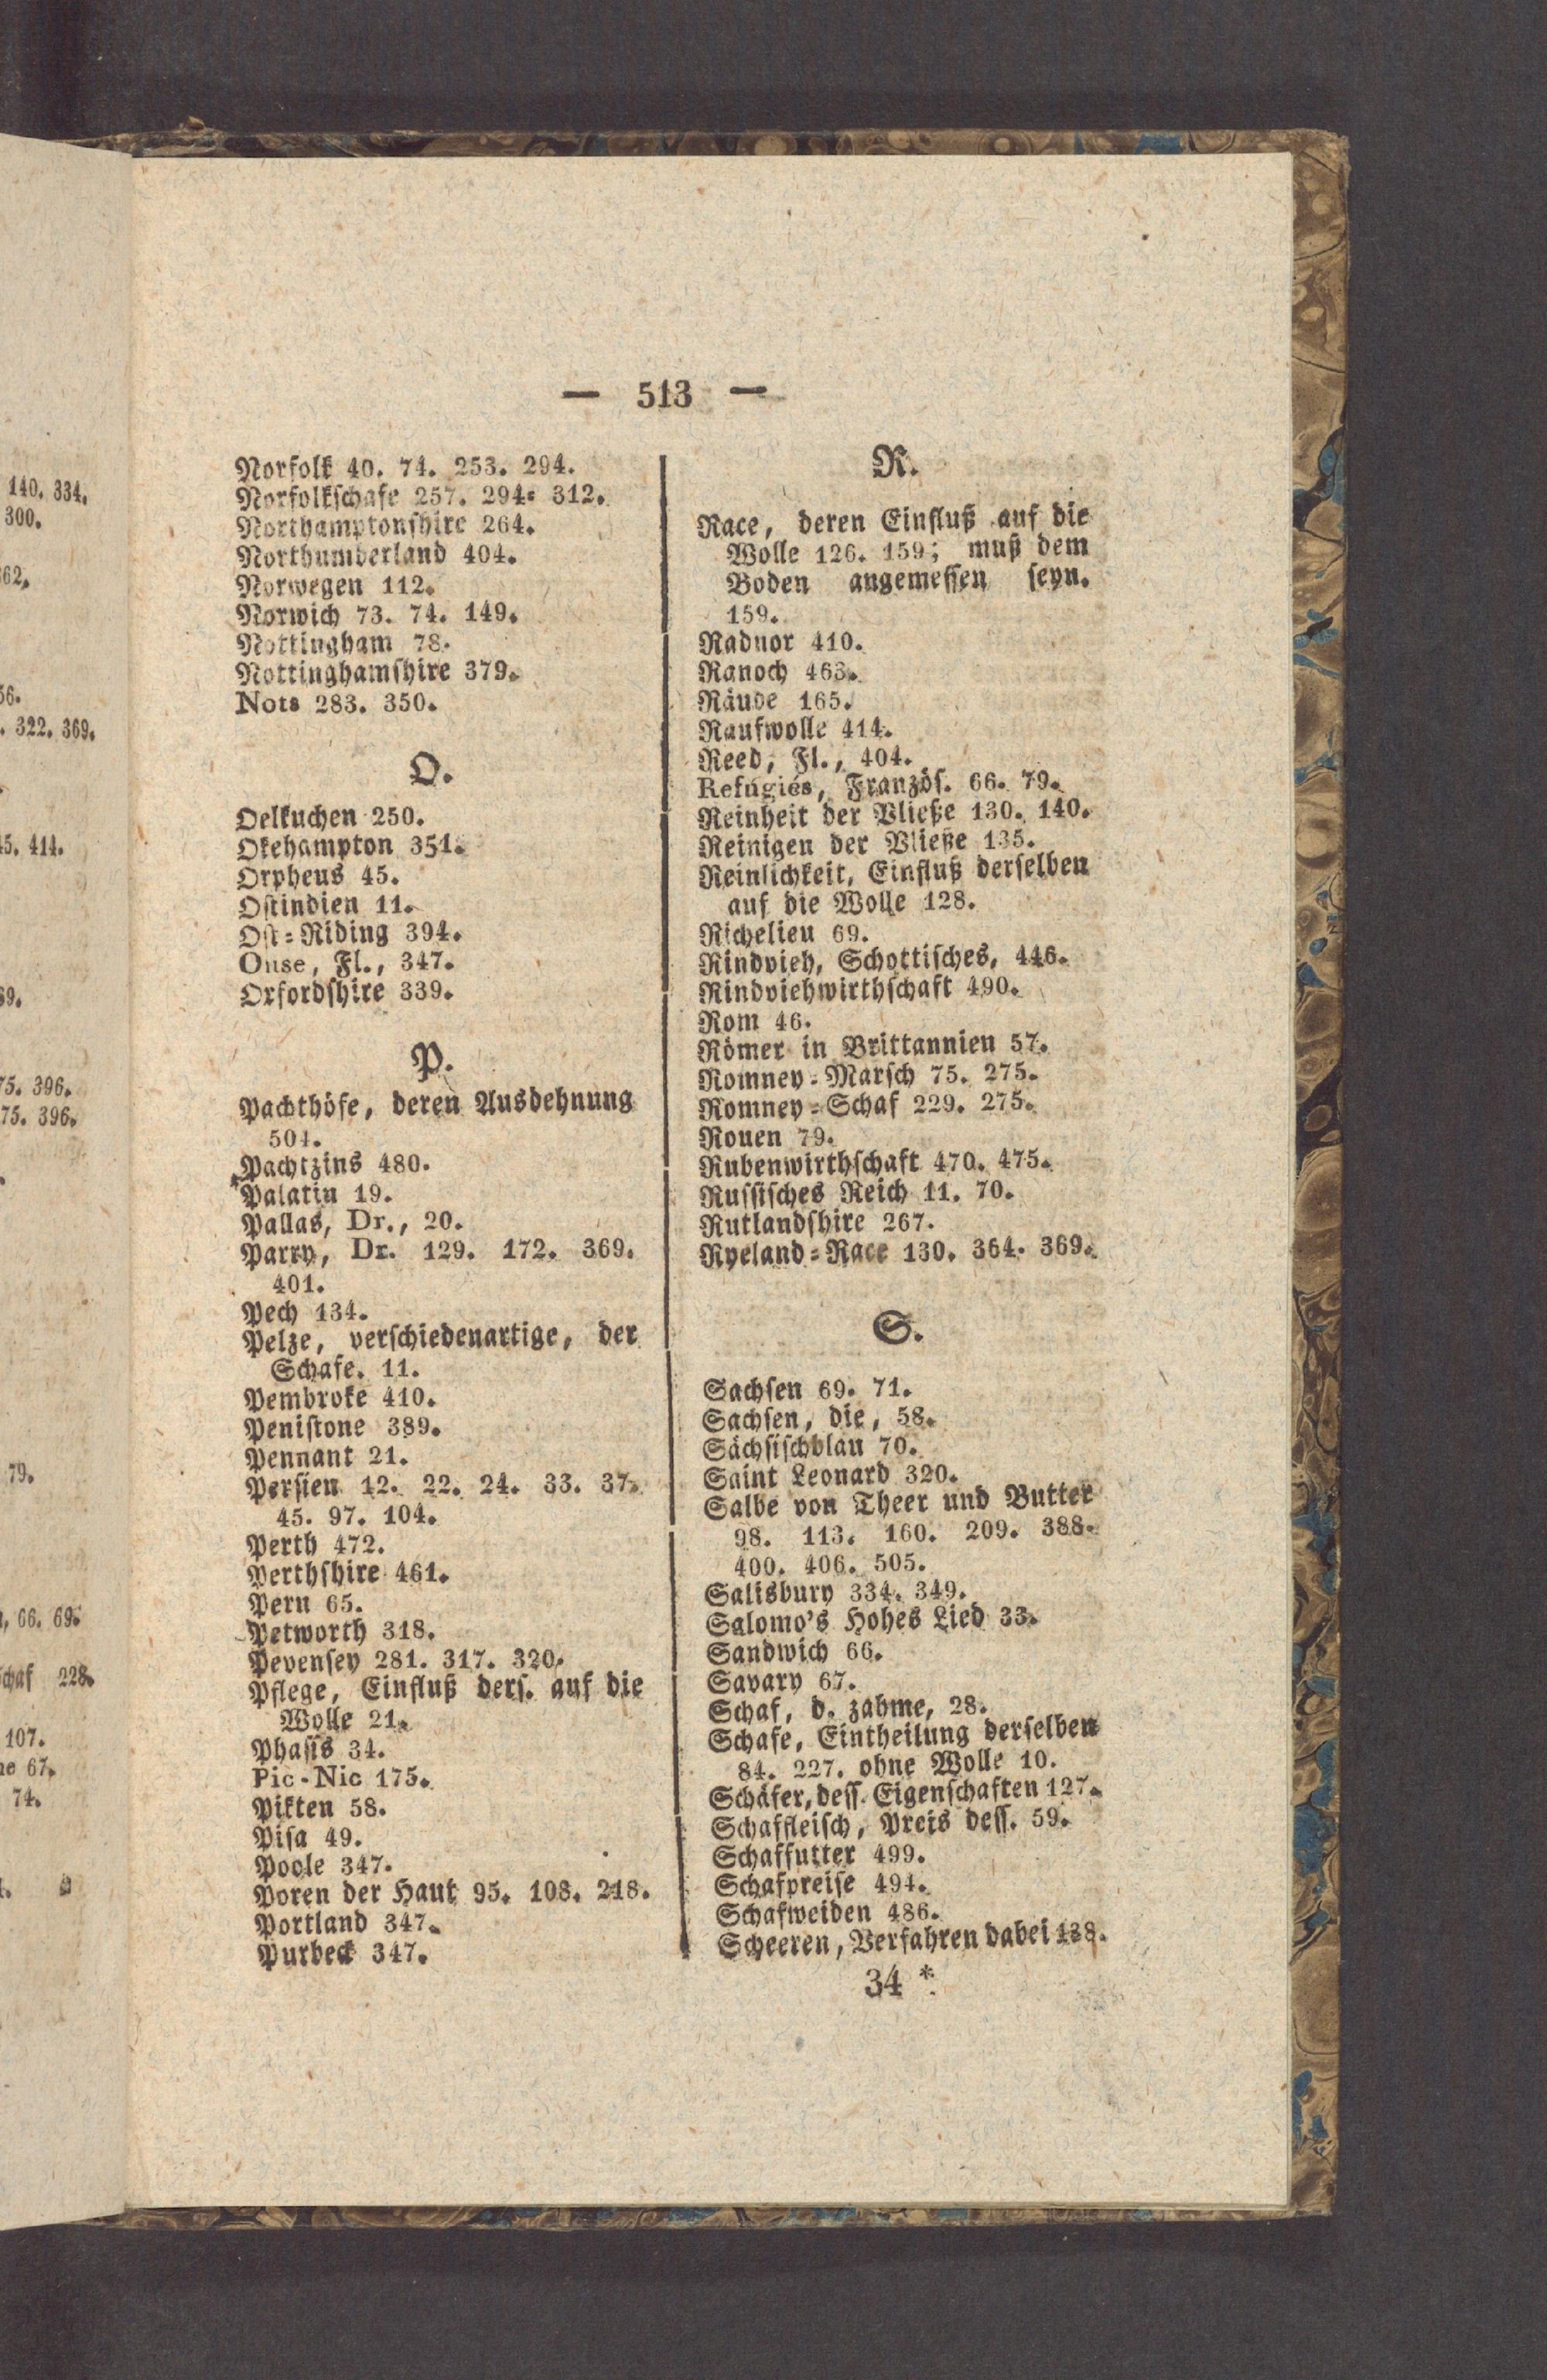 — 513 —
Norfolk 40. 74. 253. 294.
Norfolkſchafe 257. 294. 312.
Northamptonſhire 264.
Northumberland 404.
Norwegen 112.
Norwich 73. 74. 149.
Nottingham 78.
Nottinghamſhire 379.
Nots 283. 350.
O.
Oelkuchen 250.
Okehampton 351.
Orpheus 45.
Oſtindien 11.
Oſt-Riding 394.
Ouse, Fl., 347.
Oxfordſhire 339.
P.
Pachthöfe, deren Ausdehnung
504.
Pachtzins 480.
Palatin 19.
Pallas, Dr., 20.
Parry, Dr. 129. 172. 369.
401.
Pech 134.
Pelze, verſchiedenartige, der
Schafe. 11.
Pembroke 410.
Peniſtone 389.
Pennant 21.
Perſien 12. 22. 24. 33. 37.
45. 97. 104.
Perth 472.
Perthſhire 461.
Peru 65.
Petworth 318.
Pevenſey 281. 317. 320.
Pflege, Einfluß derſ. auf die
Wolle 21.
Phaſis 34.
Pic-Nic 175.
Pikten 58.
Piſa 49.
Poole 347.
Poren der Haut 95. 108. 218.
Portland 347.
Purbeck 347.
R.
Race, deren Einfluß auf die
Wolle 126. 159; muß dem
Boden angemeſſen ſeyn.
159.
Radnor 410.
Ranoch 463.
Räude 165.
Raufwolle 414.
Reed, Fl., 404.
Refúgiés, Franzöſ. 66. 79.
Reinheit der Vließe 130. 140.
Reinigen der Vließe 135.
Reinlichkeit, Einfluß derſelben
auf die Wolle 128.
Richelieu 69.
Rindvieh, Schottiſches, 446.
Rindviehwirthſchaft 490.
Rom 46.
Römer in Brittannien 57.
Romney-Marſch 75. 275.
Romney-Schaf 229. 275.
Rouen 79.
Rubenwirthſchaft 470. 475.
Ruſſiſches Reich 11. 70.
Rutlandſhire 267.
Ryeland-Race 130. 364. 369.
S.
Sachſen 69. 71.
Sachſen, die, 58.
Sächſiſchblau 70.
Saint Leonard 320.
Salbe von Theer und Butter
98. 113. 160. 209. 388.
400. 406. 505.
Salisbury 334. 349.
Salomo's Hohes Lied 33.
Sandwich 66.
Savary 67.
Schaf, d. zahme, 28.
Schafe, Eintheilung derſelben
84. 227. ohne Wolle 10.
Schäfer, deſſ. Eigenſchaften 127.
Schaffleiſch, Preis deſſ. 59.
Schaffutter 499.
Schafpreiſe 494.
Schafweiden 486.
Scheeren, Verfahren dabei 138.
34 *
140. 334.
300.
322. 369.
414.
396.
75. 396.
79.
66. 69.
228.
107.
67.
74.